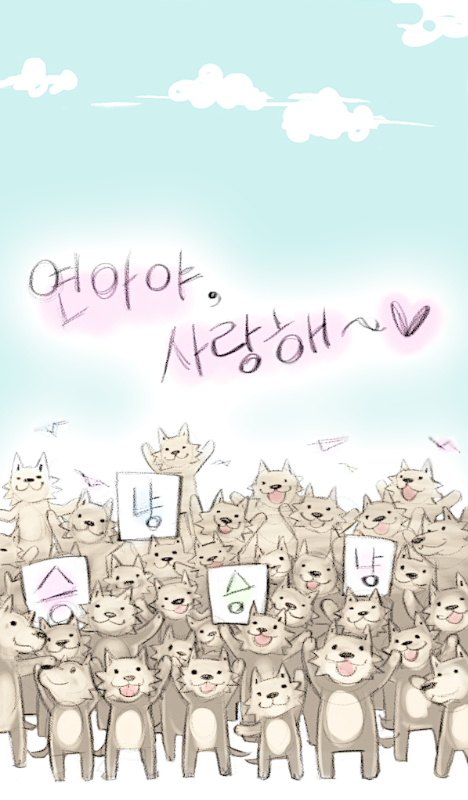 연아야,
사랑해~♥
승 냥 승 냥